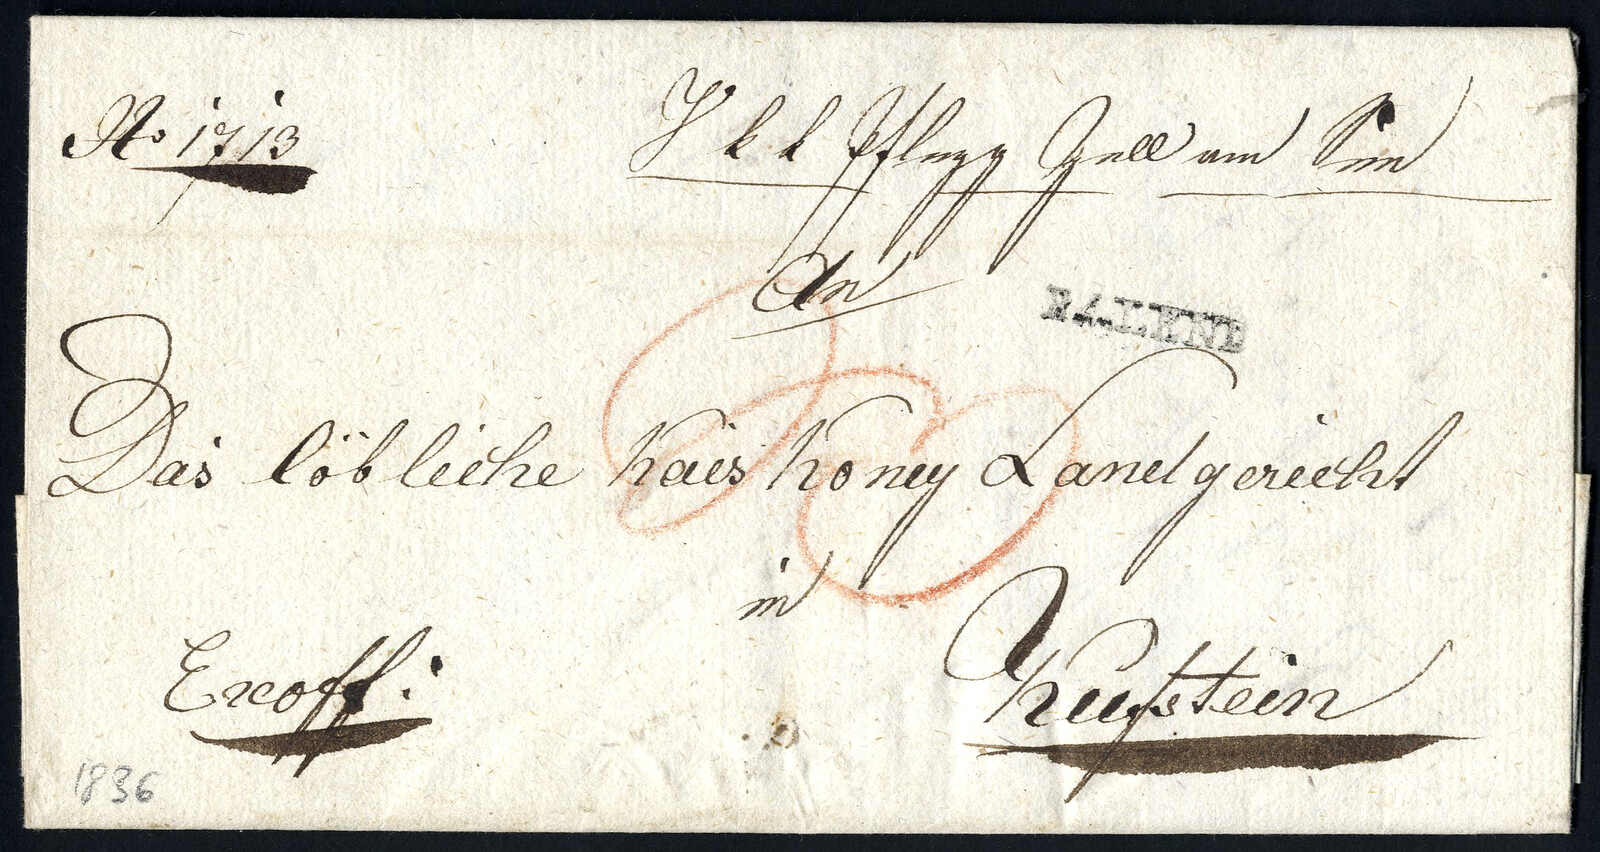 No 1713
V k k Pflegg Zell am See
An
RALEND
Das löbliche Kais Köneg Landgericht
in
Kufstein
Exoff:
1836